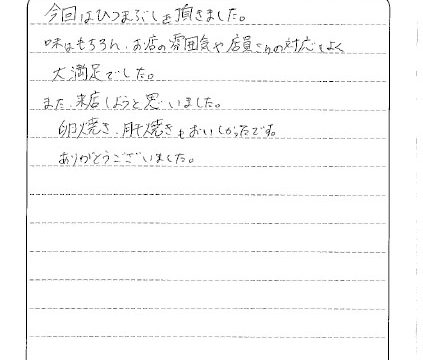 今回はひつまぶしを頂きました。
味はもちろん、お店の雰囲気や店員さんの対応もよく
大満足でした。
また、来店しようと思いました。
卵焼き、肝焼きもおいしかったです。
ありがとうございました。